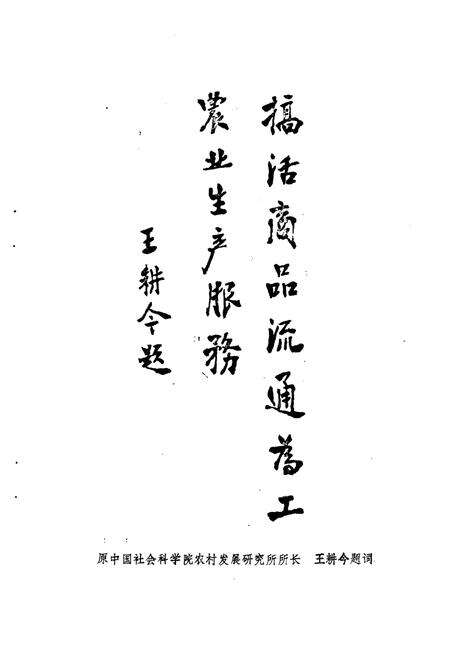 搞活商品流通為工
農业生产服務
王耕今题
原中国社会科学院农村发展研究所所长　王耕今题词